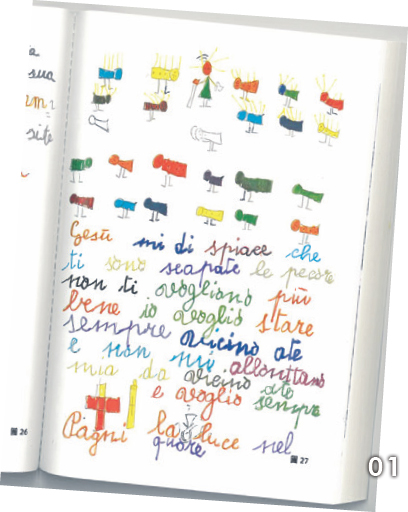 a
sua
site
Gesù mi di spiace che
ti sono scapate le pecore
non ti vogliono più
bene io voglio stare
sempre vicino ate
e non mi allontano
mia da vicino ate
e voglio sempre
Pagni la luce nel
quore
26
27
01